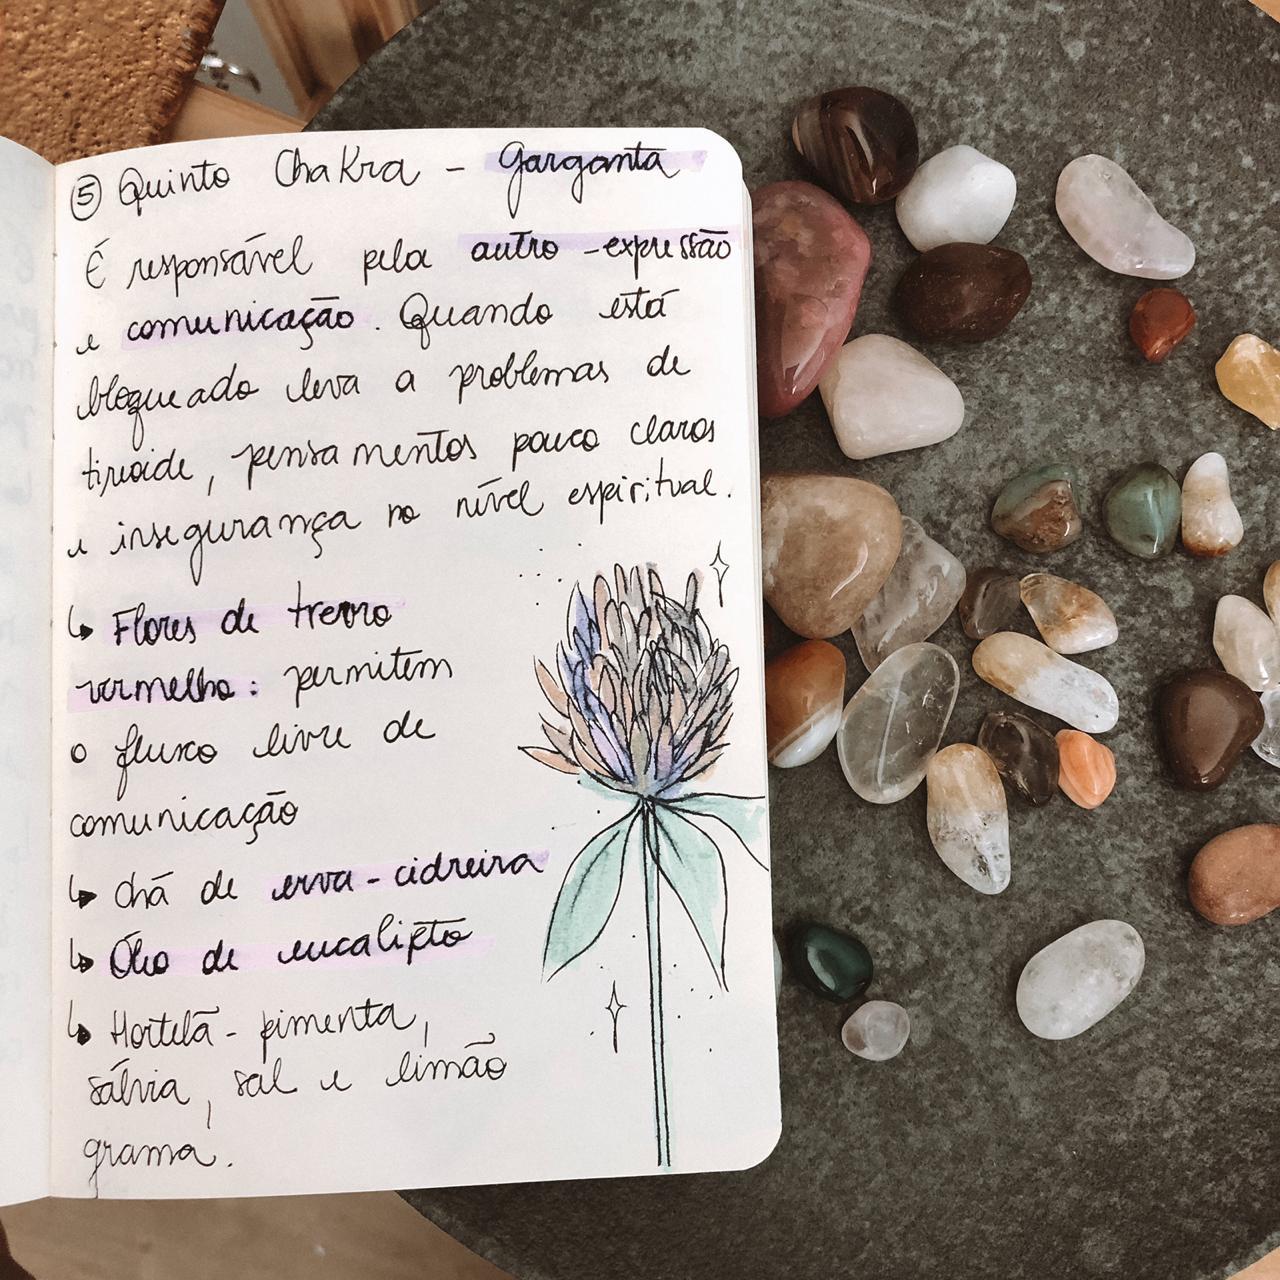 ⑤ Quinto Chakra - Garganta
É responsável pela autro-expressão
e comunicação. Quando está
bloqueado leva a problemas de
tireoide, pensamentos pouco claros
e insegurança no nível espiritual.
↳ Flores de trevo
vermelho: permitem
o fluxo livre de
comunicação
↳ chá de erva-cidreira
↳ Óleo de eucalipto
↳ Hortelã-pimenta,
sálvia, sal e limão
grama.